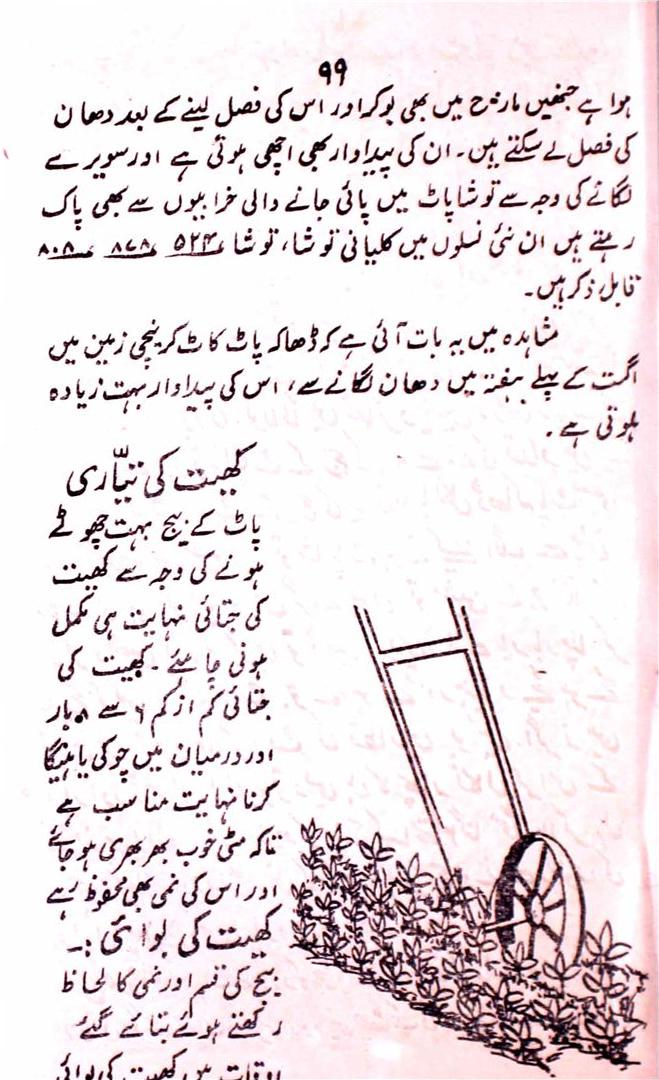 ۹۹
ہوا ہے جنھیں مارچ میں بھی بوکر اور اس کی فصل لینے کے بعد دھان
کی فصل لے سکتے ہین۔ ان کی پیداوار بھی اچھی ہوتی ہے اور سویرے
لگانے کی وجہ سے توشاپاٹ میں پائی جانے والی خرابیوں سے بھی پاک
رہتے ہیں ان نئی نسلوں میں کلیانی توشا، توشا ۵۲۴، ۸۷۸، ۸۰۸
قابل ذکر ہیں۔
مشاہدہ میں یہ بات آئی ہے کہ ڈھاکہ پاٹ کاٹ کر نیچی زمین میں
اگست کے پہلے ہفتہ میں دھان لگانے سے، اس کی پیداوار بہت زیادہ
ہوتی ہے۔
کھیت کی تیّاری
پاٹ کے بیج بہت چھوٹے
ہونے کی وجہ سے کھیت
کی جتائی نہایت ہی مکمل
ہونی چاہئے۔ کھیت کی
جتائی کم از کم ۶ سے ۸ بار
اور درمیان میں چوکی یا ہینگا
کرنا نہایت مناسب ہے
تاکہ مٹی خوب بھربھری ہوجائے
اور اس کی نمی بھی محفوظ رہے
کھیت کی بوائی :۔
بیج کی قسم اور نمی کا لحاظ
رکھتے ہوئے بتائے گئے
اوقات میں کھیت کی بوائی